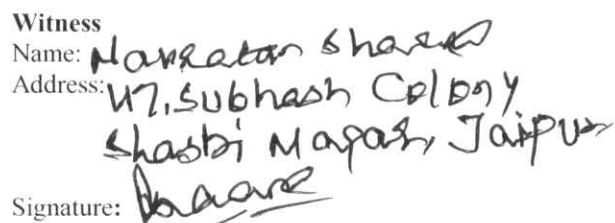 Witness
Name: Navratan Sharma
Address: 47, Subhash Colony
Shastri Nagar, Jaipur
Signature: